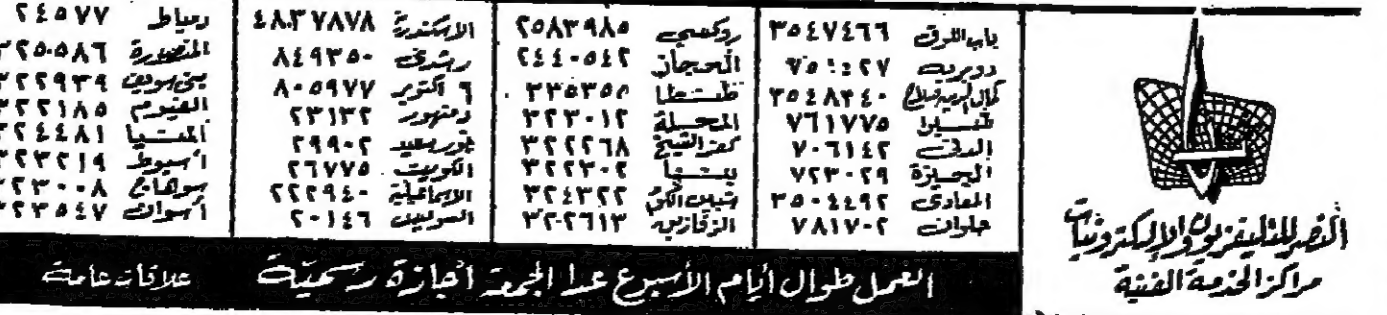 النصر للتليفزيون والإلكترونيات
مراكز الخدمة الفنية
باب اللوق ٣٥٤٧٤٦٦
دوبريه
٣٥٤٨٢٤٠
٧٦١٧٧٥
الدقى ٧٠٦١٤٢
الجيزة ٧٢٣٠٢٩
المعادى ٣٥٠٤٤٩٢
حلوان ٧٨١٧٠٢
روكسى ٢٥٨٣٩٨٥
الحجاز ٢٤٤٠٥٤٢
طنطا ٣٣٥٣٥٨
المحلة ٣٢٣٠١٢
كفر الشيخ ٣٢٢٢٦٨
بنها ٣٢٢٣٠٢
شبين الكوم ٣٢٤٣٢٢
الزقازيق ٣٢٠٢٦١٣
الاسكندرية ٤٨٠٣٧٨٧٨
رشدى ٨٤٩٣٥٠
٦ أكتوبر ٨٠٥٩٧٧
دمنهور ٢٣١٣٢
بورسعيد ٢٩٩٠٢
الكويت ٢٦٧٧٥
الاسماعيلية ٢٢٢٩٤٠
السويس ٢٠١٤٦
دمياط ٢٤٥٧٧
المنصورة ٣٢٥٠٥٨٦
بنى سويف ٣٢٢٩٣٩
الفيوم ٣٢٢١٨٥
المنيا ٣٢٤٤٨١
أسيوط ٣٢٣٢١٩
سوهاج ٣٢٣٠٠٨
أسوان ٣٢٣٥٤٧
العمل طوال أيام الأسبوع عدا الجمعة أجازة رسمية
علاقات عامة